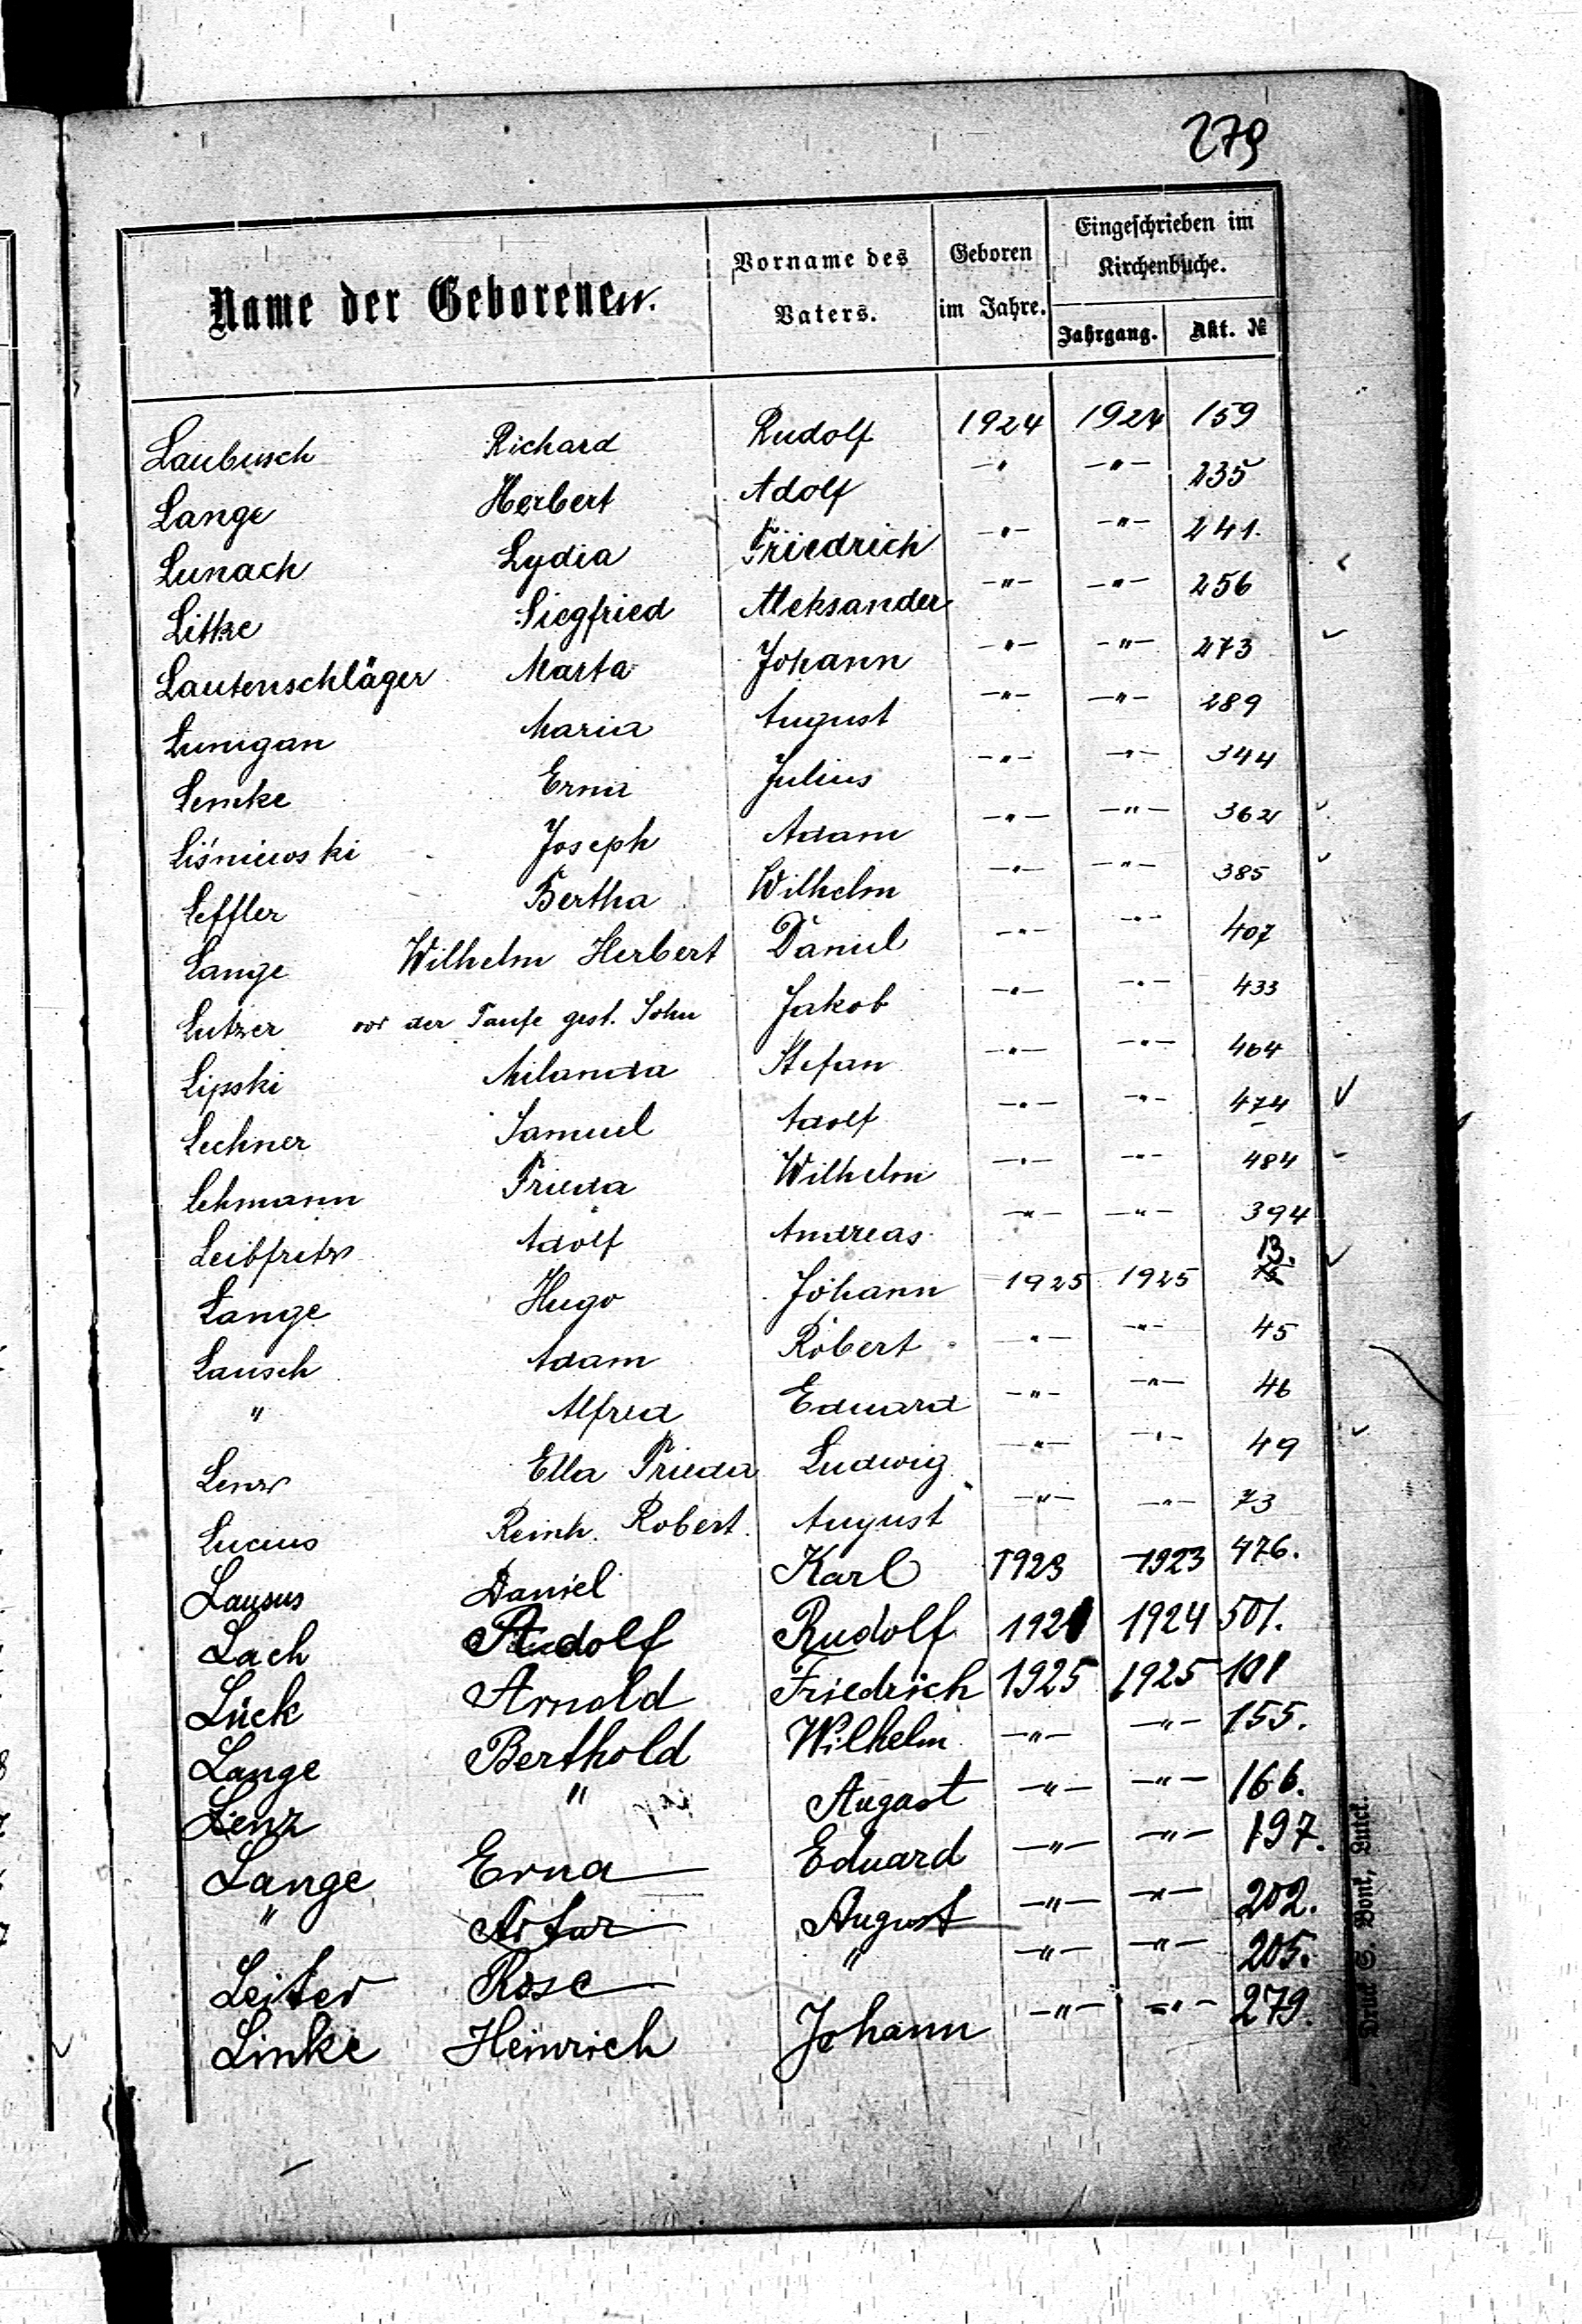 279
Name der Geborenen.
Vorname des Vaters.
Geboren im Jahre.
Eingeschrieben im Kirchenbuche.
Jahrgang.
Akt. №
Laubusch Richard Rudolf 1924 1924 159
Lange Herbert Adolf —"— —"— 235
Lunach Lydia Friedrich —"— —"— 241.
Litke Siegfried Aleksander —"— —"— 256
Lautenschläger Marta Johann —"— —"— 273
Lunigan Maria August —"— —"— 289
Lemke Erna Julius —"— —"— 344
Liśniewski Joseph Adam —"— —"— 362
Leffler Bertha Wilhelm —"— —"— 385
Lange Wilhelm Herbert Daniel —"— —"— 407
Lutzer vor der Taufe gest. Sohn Jakob —"— —"— 433
Lipski Milanda Stefan —"— —"— 464
Lechner Samuel Adolf —"— —"— 474
Lehmann Frieda Wilhelm —"— —"— 484
Leibfritz Adolf Andreas —"— —"— 394
Lange Hugo Johann 1925 1925 13.
Lausch Adam Robert —"— —"— 45
" Alfred Eduard —"— —"— 46
Lenz Ella Frieda Ludwig —"— —"— 49
Lucius Reinh. Robert August —"— —"— 73
Lausus Daniel Karl 1923 1923 476.
Lach Rudolf 1924 501.
Lück Arnold Friedrich 1925 1925 101
Lange Berthold Wilhelm —"— —"— 155.
Lenz " August —"— —"— 166.
Lange Erna Eduard —"— —"— 197.
" Artur August —"— —"— 202.
Leiter Rose " —"— —"— 205.
Linke Heinrich Johann —"— —"— 279.
Druck S. Bonk, Luck.